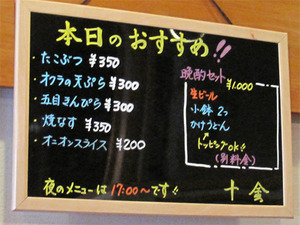 本日のおすすめ!!
・たこぶつ ¥350
・オクラの天ぷら ¥300
・五目きんぴら ¥300
・焼なす ¥350
・オニオンスライス ¥200
晩酌セット ¥1,000
生ビール
小鉢 2つ
かけうどん
トッピングok!!
(別料金)
夜のメニューは 17:00〜です!!
十